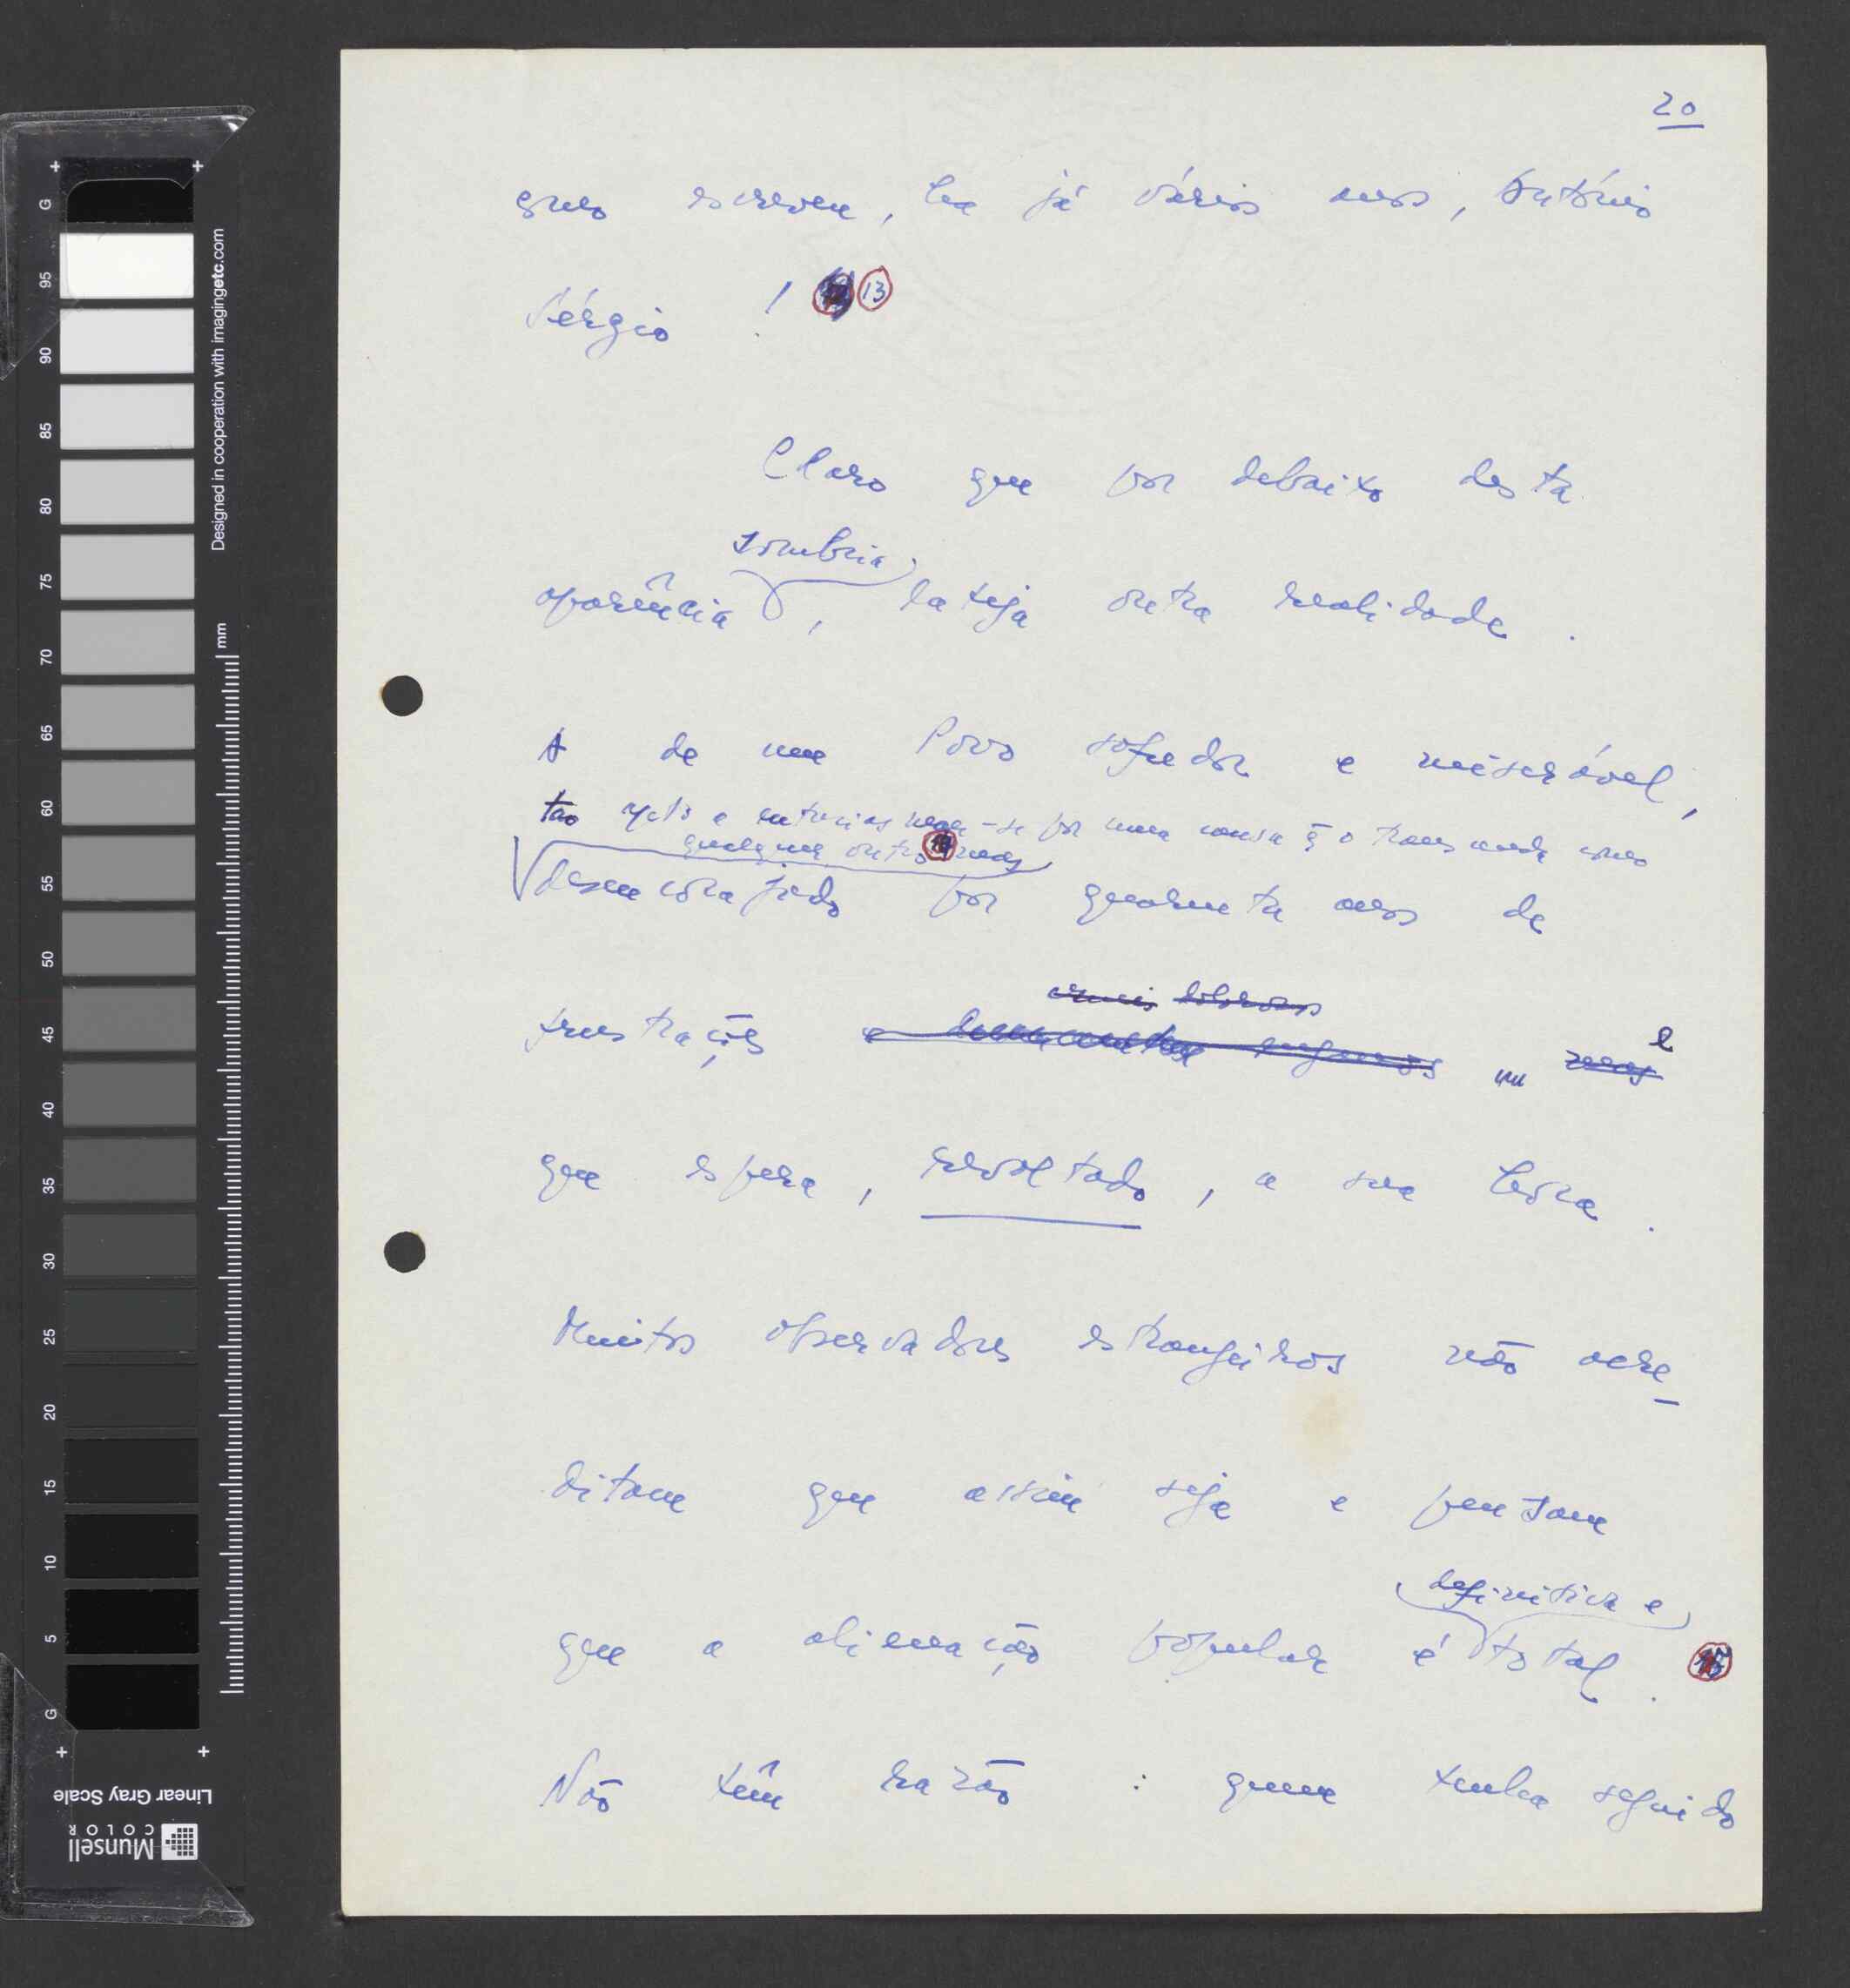 20
como escreveu, há já vários anos, António
Sérgio ! 13
Claro que por debaixo desta
sombria
aparência, lateja outra realidade.
A de um Povo sofredor e miserável,
tão apto a entusiasmar-se por uma causa q̃ o transcenda como
qualquer outro mas
desencorajado por quarenta anos de
frustrações e enganos um mas e
que espera, revoltado, a sua hora.
Muitos observadores estrangeiros não acre-
ditam que assim seja e pensam
definitiva e
que a alienação popular é total. 15
Não têm razão : quem tenha seguido
G
95
90
85
80
75
70
65
60
55
50
45
40
35
30
25
20
15
10
5
G
mm
mm
Designed in cooperation with imagingetc.com
Linear Gray Scale
Munsell
COLOR